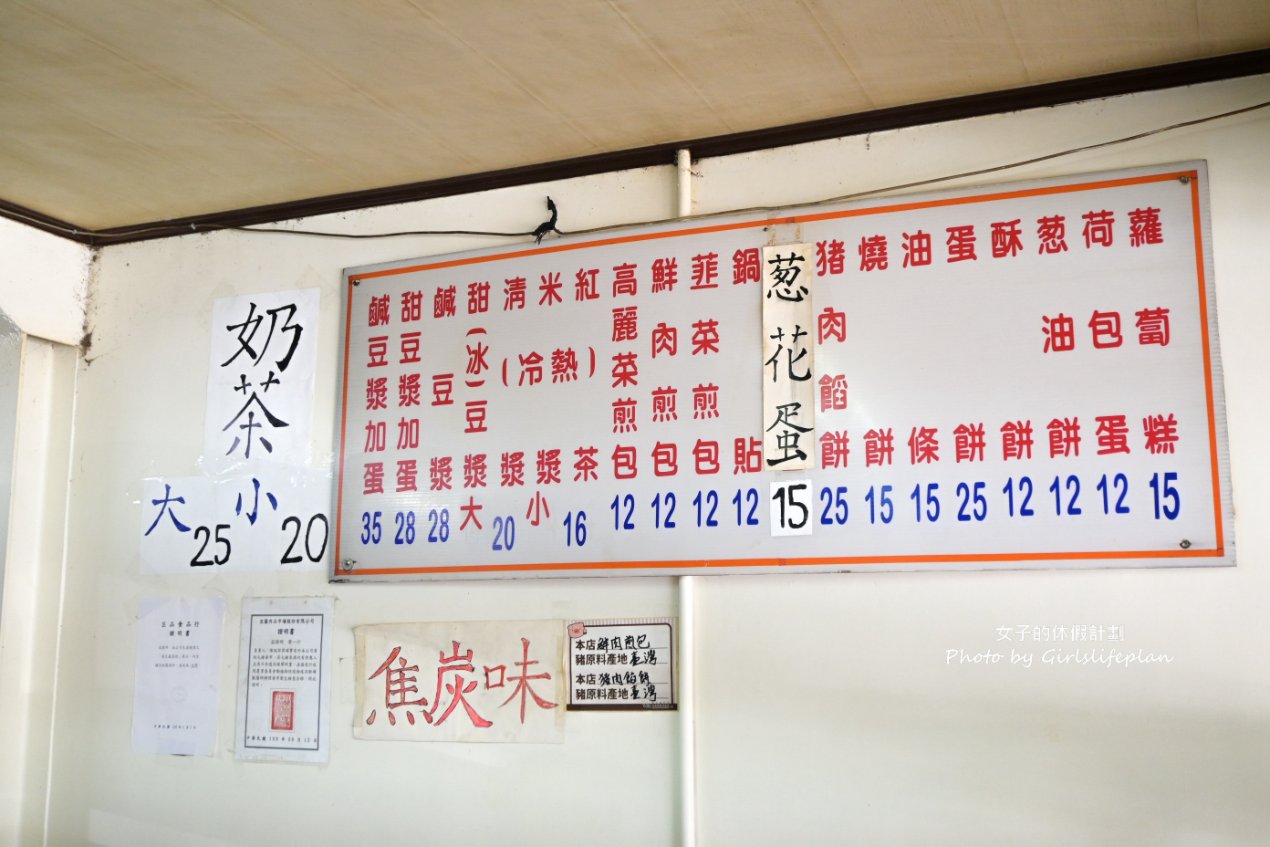 奶茶
大25
小20
鹹豆漿加蛋 35
甜豆漿加蛋 28
鹹豆漿 28
甜(冰)豆漿
清漿
米漿
(冷熱)
大20小
紅茶 16
高麗菜煎包 12
鮮肉煎包 12
韮菜煎包 12
鍋貼 12
葱花蛋 15
猪肉餡餅 25
燒餅 15
油條 15
蛋餅 25
酥餅 12
葱油餅 12
荷包蛋 12
蘿蔔糕 15
證明書
證明書
焦炭味
本店鮮肉煎包
豬原料產地臺灣
本店猪肉餡餅
豬原料產地臺灣
女子的休假計劃
Photo by Girlslifeplan